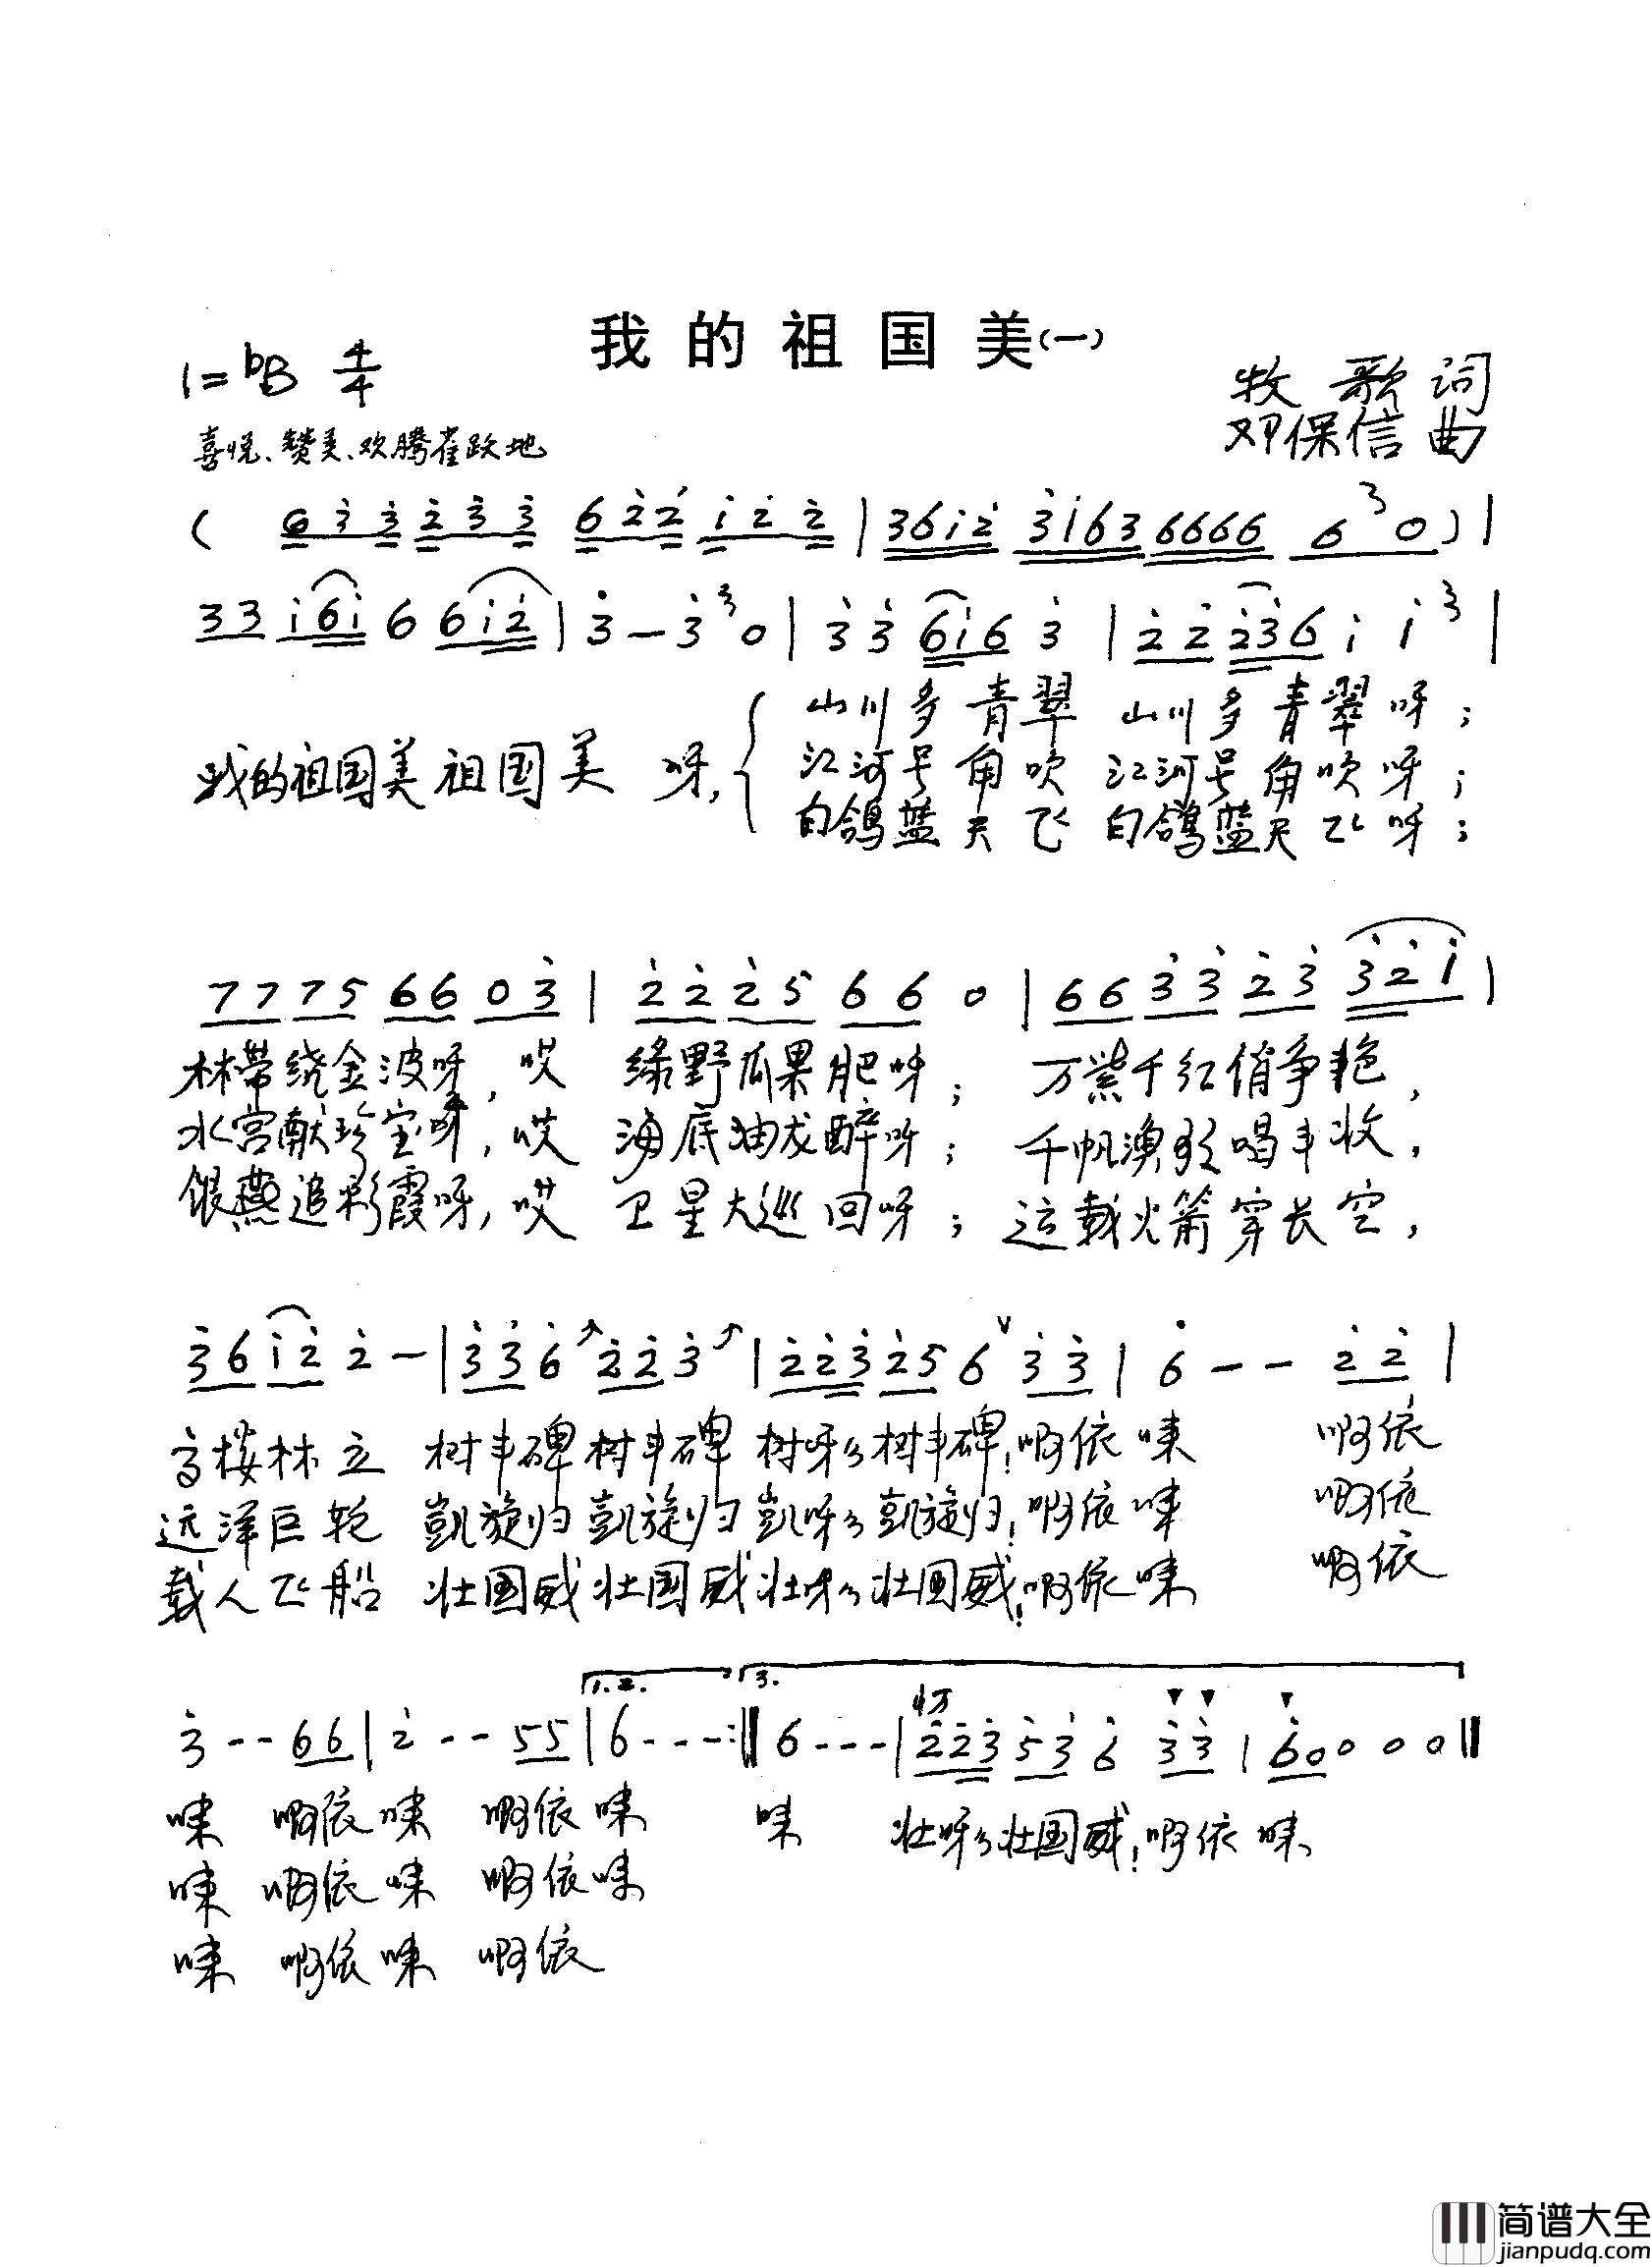 我的祖国美(一)
1=bB 4/4
牧歌词
邓保信曲
喜悦、赞美、欢腾雀跃地
( 6 3 3 2 3 3 6 2 2 1 2 2 | 3 6 1 2 3 1 6 3 6 6 6 6 6 3 0 ) |
3 3 1 6 1 6 6 1 2 | 3 - 3 3 0 | 3 3 6 1 6 3 | 2 2 2 3 6 1 1 3 |
山川多青翠 山川多青翠呀;
我的祖国美祖国美 呀, 江河号角吹 江河号角吹呀;
白鸽蓝天飞 白鸽蓝天飞呀;
7 7 7 5 6 6 0 3 | 2 2 2 5 6 6 0 | 6 6 3 3 2 3 3 2 1 |
林带绕金波呀, 哎 绿野瓜果肥呀; 万紫千红俏争艳,
水宫献珍宝呀, 哎 海底油龙醉呀; 千帆渔歌唱丰收,
银燕追彩霞呀, 哎 卫星大巡回呀; 运载火箭穿长空,
3 6 1 2 2 - | 3 3 6 2 2 3 | 2 2 3 2 5 6 V 3 3 | 6 - - 2 2 |
高楼林立 树丰碑树丰碑 树呀么树丰碑!啊依唻 啊依
远洋巨轮 凯旋归凯旋归 凯呀么凯旋归!啊依唻 啊依
载人飞船 壮国威壮国威 壮呀么壮国威!啊依唻 啊依
1.2. 3.
3 - - 6 6 | 2 - - 5 5 | 6 - - - :‖ 6 - - - | 2 2 3 5 3 6 3 3 | 6 0 0 0 0 ‖
唻 啊依唻 啊依唻 唻 壮呀么壮国威!啊依唻
唻 啊依唻 啊依唻
唻 啊依唻 啊依
简谱大全
jianpudq.com